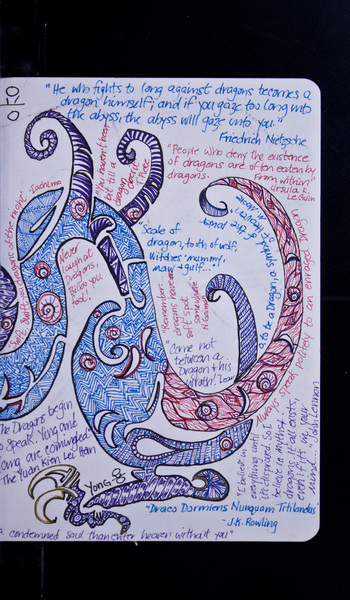 "He who fights to long against dragons becomes a
dragon himself; and if you gaze too long into
the abyss, the abyss will gaze into you."
Friedrich Nietzsche
"People who deny the existence
of dragons are often eaten by
dragons.
From within."
Ursula K.
Le Guin
you haven't been
bit till a
dragon does it
T. Pierce
"Scale of
dragon, tooth of wolf,
Witches' mummy,
maw + gulf..."
Never
laugh at
dragons,
you
fool!
"Remember.
dragons have
soft spot
somewhere"
"Come not
between a
Dragon + his
wrath" Lear
Always speak politely to an enraged Dragon
"I believe in
everything until
it's disproved. So I
believe in
dragons. It all exists,
even if it's in your
mind..." John Lennon
The Dragons begin
to speak. Ying and
Yang are comingled
Yong
"Draco Dormiens Nunquam Titilandus"
- J.K. Rowling
a condemned soul than enter heaven without you"